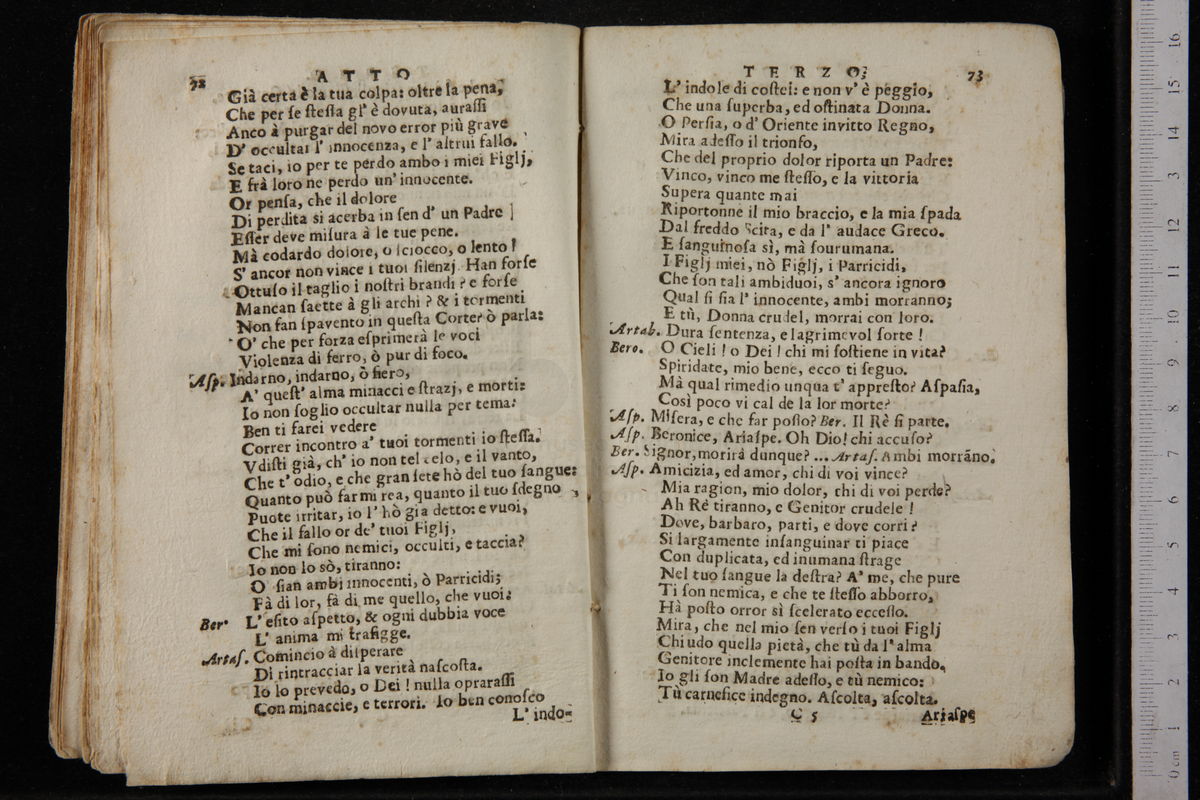 72
ATTO
Già certa è la tua colpa: oltre la pena,
Che per se ſteſſa gl' è dovuta, auraſſi
Anco à purgar del novo error più grave
D' occultar l' innocenza, e l' altrui fallo.
Se taci, io per te perdo ambo i miei Figlj,
E frà loro ne perdo un' innocente.
Or penſa, che il dolore
Di perdita si acerba in ſen d' un Padre
Eſſer deve miſura à le tue pene.
Mà codardo dolore, o ſciocco, o lento!
S' ancor non vince i tuoi ſilenzj. Han forſe
Ottuſo il taglio i noſtri brandi? e forſe
Mancan ſaette à gli archi? & i tormenti
Non fan ſpavento in queſta Corte? ò parla:
O' che per forza eſprimerà le voci
Violenza di ferro, ò pur di foco.
Aſp. Indarno, indarno, ò fiero,
A' queſt' alma minacci e ſtrazj, e morti:
Io non ſoglio occultar nulla per tema:
Ben ti farei vedere
Correr incontro a' tuoi tormenti io ſteſſa.
Vdiſti già, ch' io non tel celo, e il vanto,
Che t' odio, e che gran ſete hò del tuo ſangue:
Quanto può farmi rea, quanto il tuo ſdegno
Puote irritar, io l' hò gia detto: e vuoi,
Che il fallo or de' tuoi Figlj,
Che mi ſono nemici, occulti, e taccia?
Io non lo sò, tiranno:
O ſian ambi innocenti, ò Parricidi;
Fà di lor, fà di me quello, che vuoi.
Ber. L' eſito aſpetto, & ogni dubbia voce
L' anima mi trafigge.
Artaſ. Comincio à diſperare
Di rintracciar la verità naſcoſta.
Io lo prevedo, o Dei! nulla opraraſſi
Con minaccie, e terrori. Io ben conoſco
L' indo-
TERZO.
73
L' indole di coſtei: e non v' è peggio,
Che una ſuperba, ed oſtinata Donna.
O Perſia, o d' Oriente invitto Regno,
Mira adeſſo il trionfo,
Che del proprio dolor riporta un Padre:
Vinco, vinco me ſteſſo, e la vittoria
Supera quante mai
Riportonne il mio braccio, e la mia ſpada
Dal freddo Scita, e da l' audace Greco.
E ſanguinoſa sì, mà ſourumana.
I Figlj miei, nò Figlj, i Parricidi,
Che ſon tali ambiduoi, s' ancora ignoro
Qual ſi ſia l' innocente, ambi morranno;
E tù, Donna crudel, morrai con loro.
Artab. Dura ſentenza, e lagrimevol ſorte!
Bero. O Cieli! o Dei! chi mi ſoſtiene in vita?
Spiridate, mio bene, ecco ti ſeguo.
Mà qual rimedio unqua t' appreſto? Aſpaſia,
Così poco vi cal de la lor morte?
Aſp. Miſera, e che far poſſo? Ber. Il Rè ſi parte.
Aſp. Beronice, Ariaſpe. Oh Dio! chi accuſo?
Ber. Signor, morirà dunque? ... Artaſ. Ambi morrāno.
Aſp. Amicizia, ed amor, chi di voi vince?
Mia ragion, mio dolor, chi di voi perde?
Ah Rè tiranno, e Genitor crudele!
Dove, barbaro, parti, e dove corri?
Si largamente inſanguinar ti piace
Con duplicata, ed inumana ſtrage
Nel tuo ſangue la deſtra? A' me, che pure
Ti ſon nemica, e che te ſteſſo abborro,
Hà poſto orror sì ſcelerato ecceſſo.
Mira, che nel mio ſen verſo i tuoi Figlj
Chiudo quella pietà, che tù da l' alma
Genitore inclemente hai poſta in bando.
Io gli ſon Madre adeſſo, e tù nemico:
Tù carnefice indegno. Aſcolta, aſcolta.
C 5
Ariaſpe